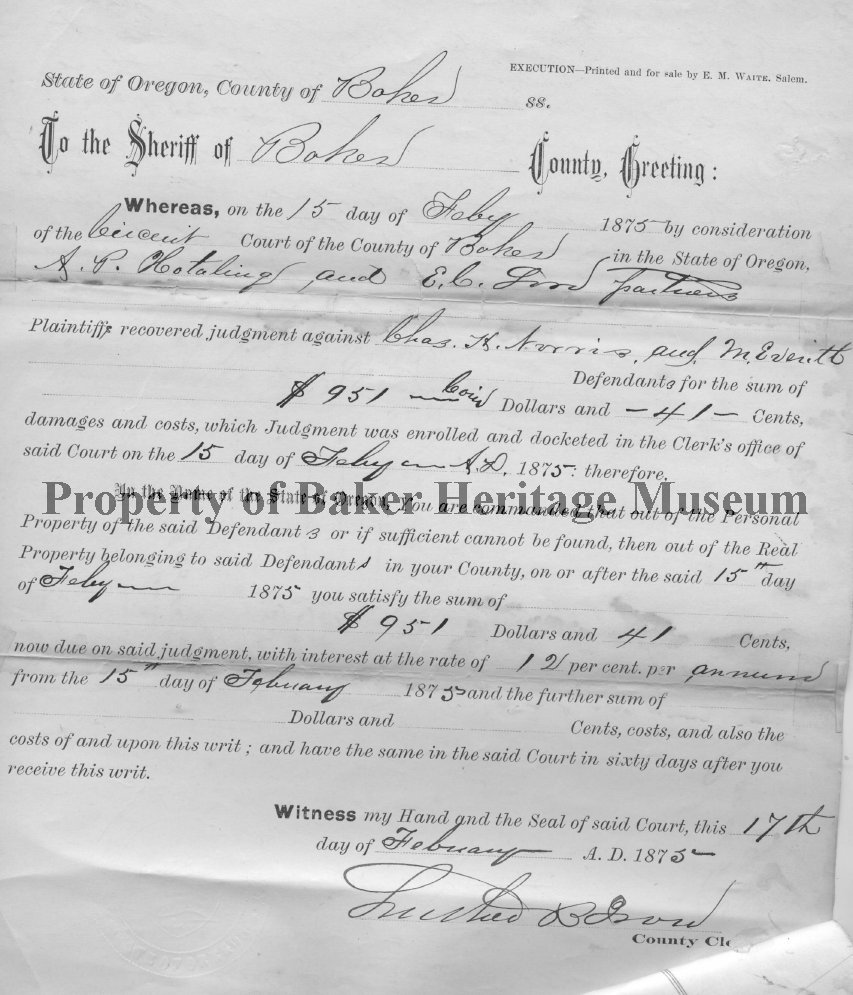 EXECUTION—Printed and for sale by E. M. WAITE, Salem.
State of Oregon, County of Baker ss.
To the Sheriff of Baker County, Greeting:
Whereas, on the 15 day of Feby 1875 by consideration
of the Circuit Court of the County of Baker in the State of Oregon,
A. P. Hotaling and E. C. partners
Plaintiffs recovered judgment against Chas. K. Norris, and M. Everitt
Defendants for the sum of
$ 951 Coin Dollars and - 41 - Cents,
damages and costs, which Judgment was enrolled and docketed in the Clerk's office of
said Court on the 15 day of Feby A.D. 1875: therefore,
In the Name of the State of Oregon, You are commanded that out of the Personal
Property of Baker Heritage Museum
Property of the said Defendants or if sufficient cannot be found, then out of the Real
Property belonging to said Defendants in your County, on or after the said 15th day
of Feby 1875 you satisfy the sum of
$ 951 Dollars and 41 Cents,
now due on said judgment, with interest at the rate of 12 per cent. per annum
from the 15th day of February 1875 and the further sum of
Dollars and Cents, costs, and also the
costs of and upon this writ; and have the same in the said Court in sixty days after you
receive this writ.
Witness my Hand and the Seal of said Court, this 17th
day of February A. D. 1875
County Cle